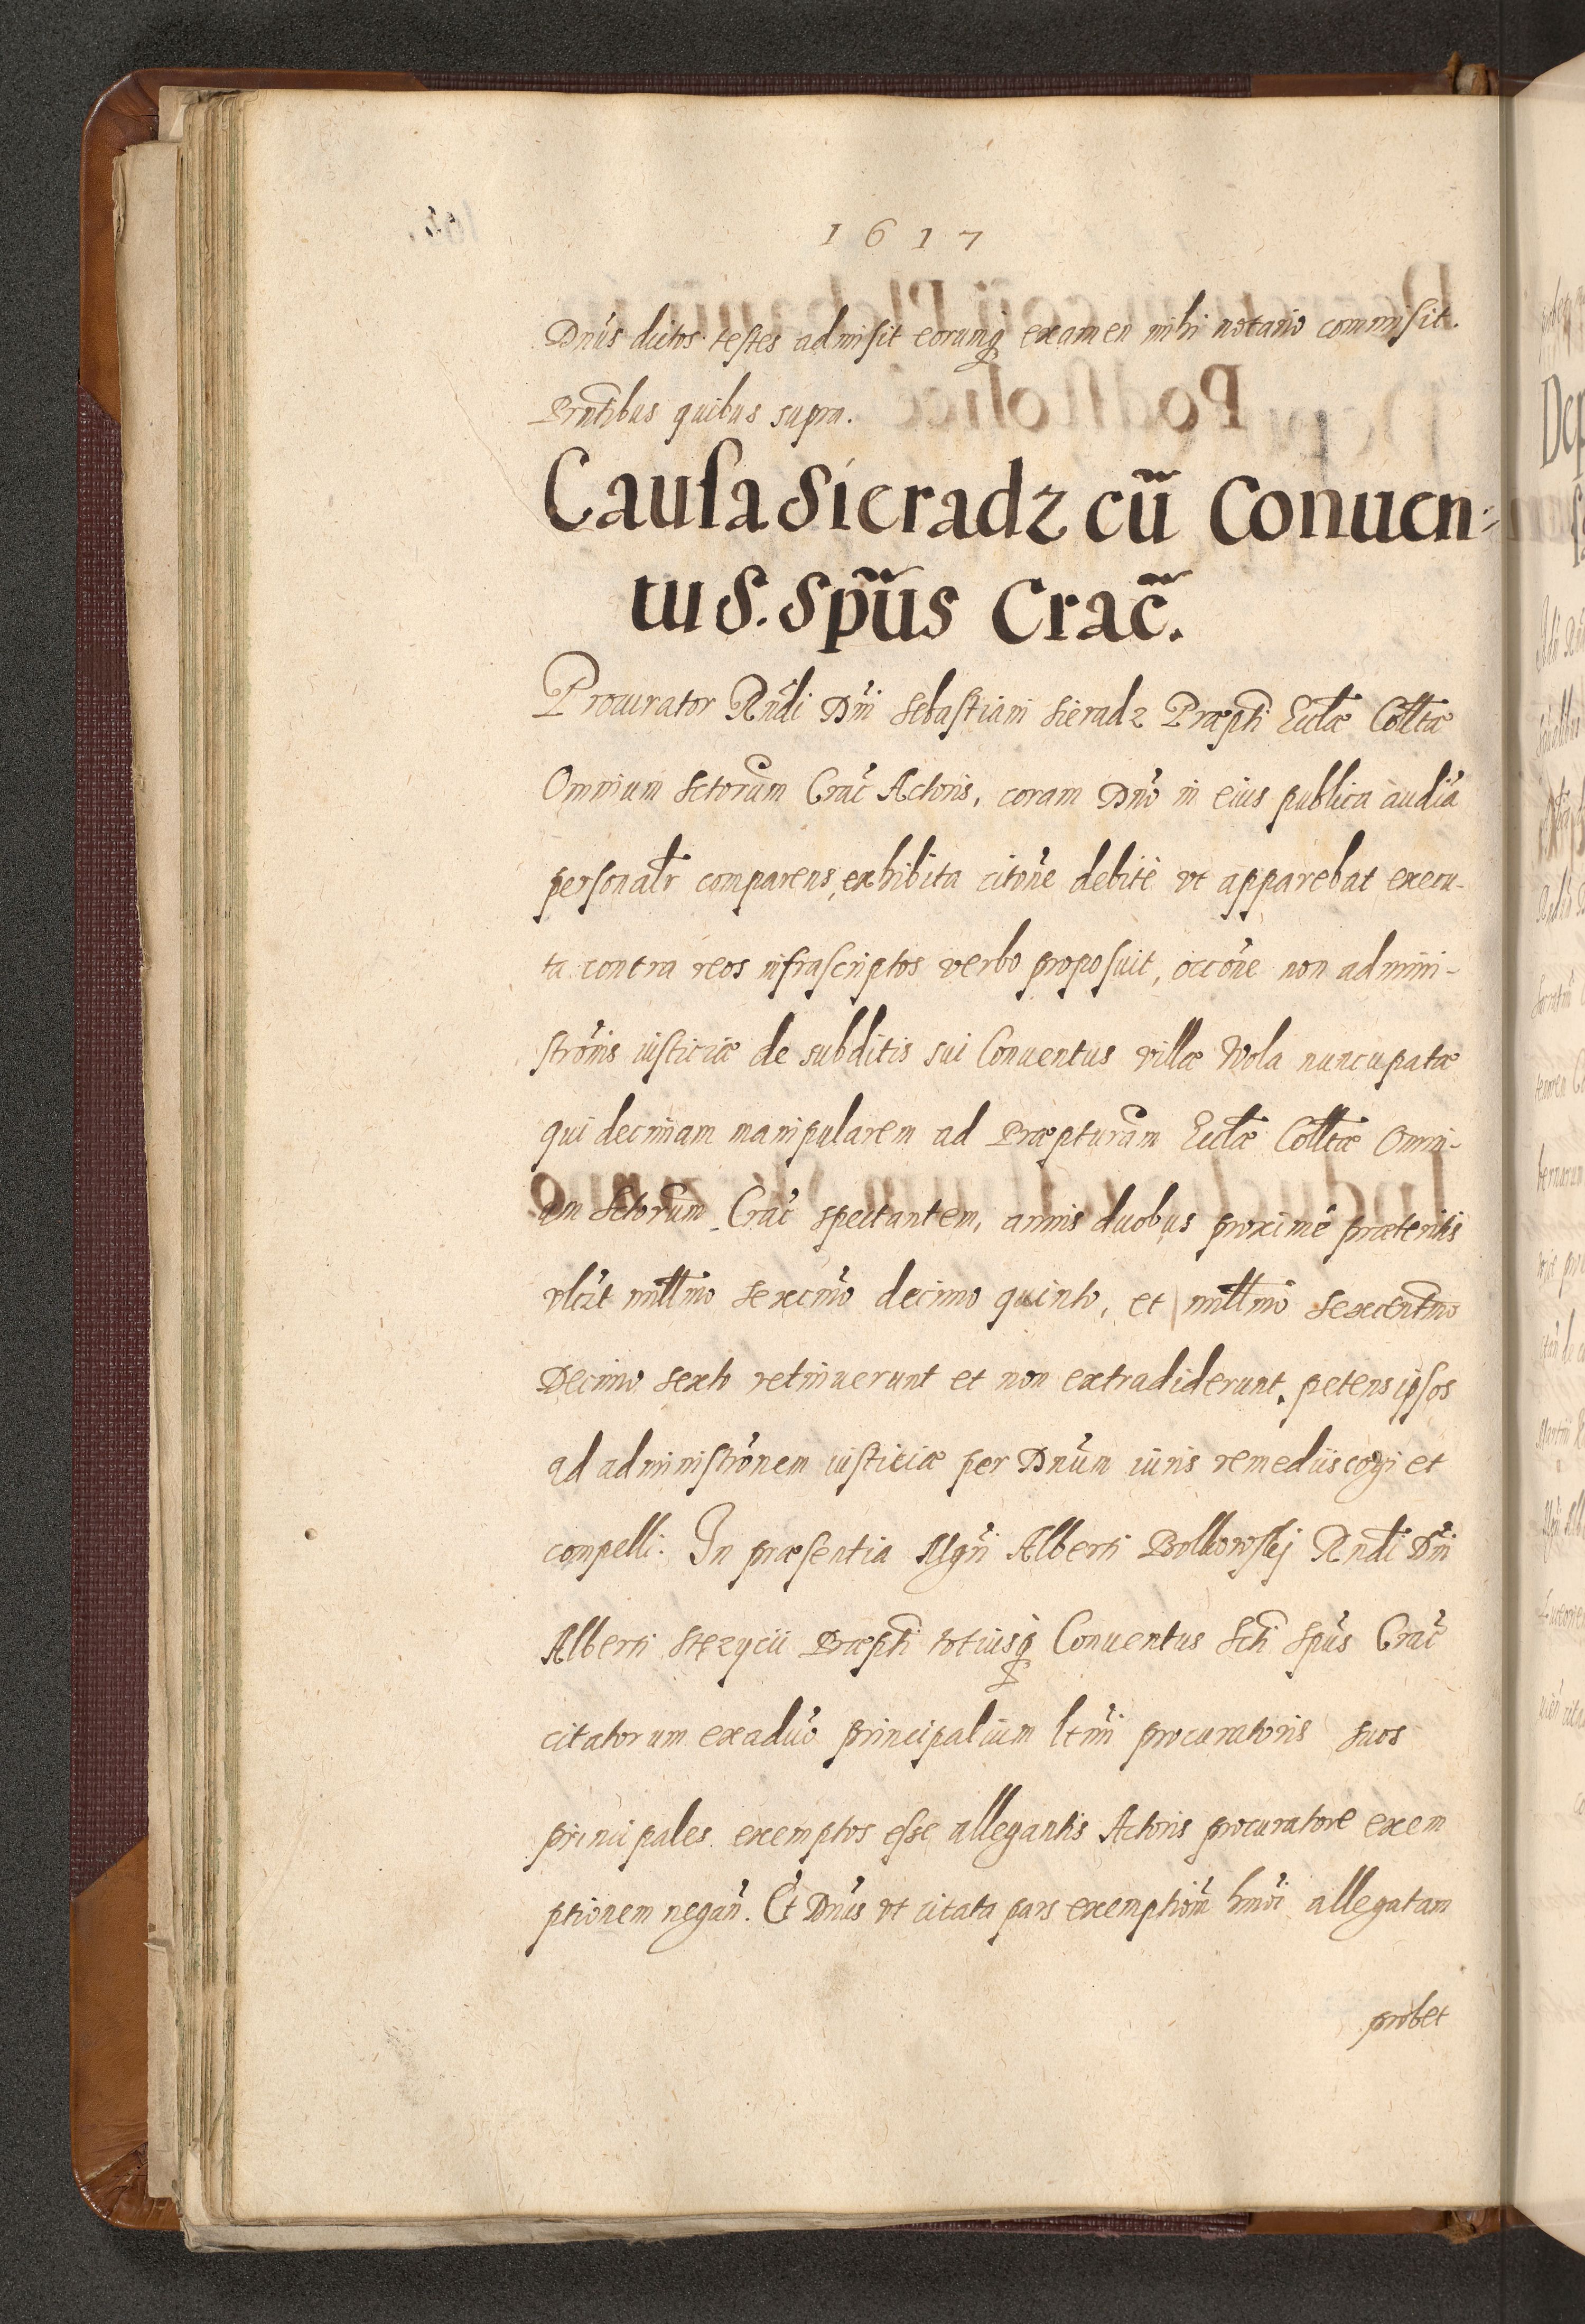 1617
Dn̄us dictos testes admisit eorumq̨ examen mihi notario commisit.
Prn̄tibus quibus supra.
Causa Sieradz cū Conuen=
tu S. Sp̄us Crac̄.
Procurator Rn̄di Dn̄i Sebastiani Sieradz Præpti Eccl̄æ Coll̄tæ
Omnium Sctorum Crac̄ Actoris, coram Dn̄o in eius publica audīa
personalr̄ comparens, exhibita citōne debite vt apparebat execu-
ta contra reos infrascriptos verbo proposuit, occōne non admini-
strōnis iusticiæ de subditis sui Conuentus villæ Wola nuncupatæ
qui decimam manipularem ad Præpturam Eccl̄æ Coll̄tæ Omni-
um Sctorum Crac̄ spectantem, annis duobus proximè præteritis
vlc̄zt mill̄mo sexcm̄o decimo quinto, et mill̄mo sexcentm̄o
Decimo sexto retinuerunt et non extradiderunt, petens ipsos
ad administrōnem iusticiæ per Dn̄um iuris remediis cogi et
compelli. In præsentia Mgn̄i Alberti Bolkowskj Rn̄di Dn̄i
Alberti Stezycii Præpti totiusq̨ Conuentus Scti Sp̄us Crac̄
citatorum ex aduō principalium lt̄mi procuratoris suos
principales exemptos esse allegantis Actoris procuratore exem
ptionem negan̄. Et Dn̄us vt citata pars exemptiōm hmōi allegatam
probet